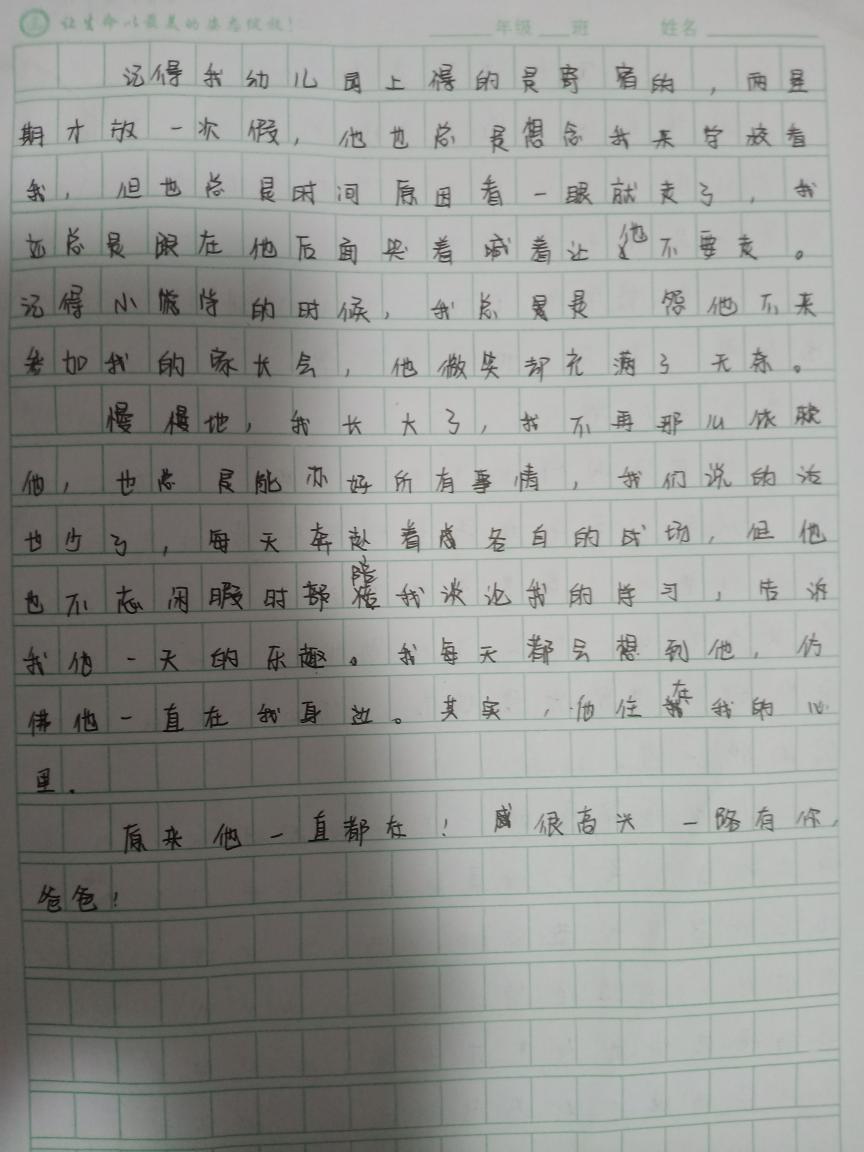 让生命以最美的姿态绽放!
年级 班 姓名
记得我幼儿园上得的是寄宿的，两星
期才放一次假，他也总是想念我来学校看
我，但也总是时间原因看一眼就走了，我
还总是跟在他后面哭着喊着让他不要走。
记得小学的时候，我总是怨他不来
参加我的家长会，他微笑却充满了无奈。
慢慢地，我长大了，我不再那么依赖
他，也总是能办好所有事情，我们说的话
也少了，每天奔赴着各自的战场，但他
也不忘闲暇时都陪我谈论我的学习，告诉
我他一天的乐趣。我每天都会想到他，仿
佛他一直在我身边。其实，他住在我的心
里.
原来他一直都在！很高兴一路有你，
爸爸！